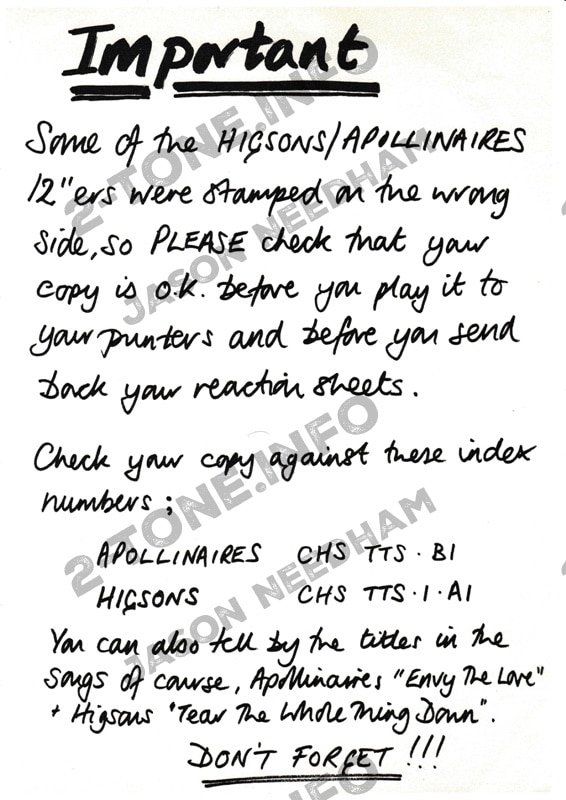 Important
Some of the HIGSONS/APOLLINAIRES
12"ers were stamped on the wrong
side, so PLEASE check that your
copy is O.K. before you play it to
your punters and before you send
back your reaction sheets.
Check your copy against these index
numbers;
APOLLINAIRES CHS TTS·B1
HIGSONS CHS TTS·1·A1
You can also tell by the titles in the
songs of course, Apollinaires "Envy The Love"
+ Higsons "Tear The Whole Thing Down".
DON'T FORGET !!!
2-TONE.INFO
JASON NEEDHAM
2-TONE.INFO
JASON NEEDHAM
2-TONE.INFO